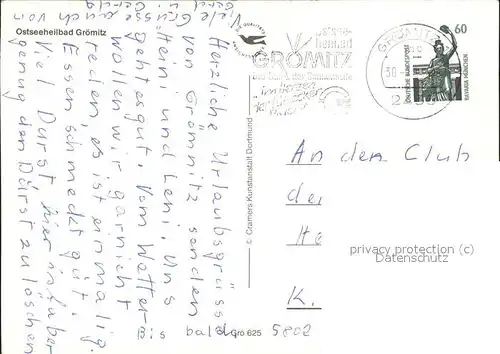 Ostseeheilbad Grömitz
Herzliche Urlaubsgrüsse
von Grömnitz senden
Heini und Leni. Uns
geht es gut. Vom Wetter
wollen wir garnicht
reden, es ist einmalig.
Essen schmeckt gut.
Viel Durst hier in ü̈ber
genug den Durst zu löschen
Bis bald
Viele Grüsse
auch von
© Cramers Kunstanstalt Dortmund
Grö 625
QUALITÄTS
Ostsee-
heilbad
GRÖMITZ
Das Bad an der Sonnenseite
GRÖMITZ
30
60
DEUTSCHE BUNDESPOST
BAVARIA MÜNCHEN
An den Club
der
He
K.
5802
privacy protection (c)
Datenschutz